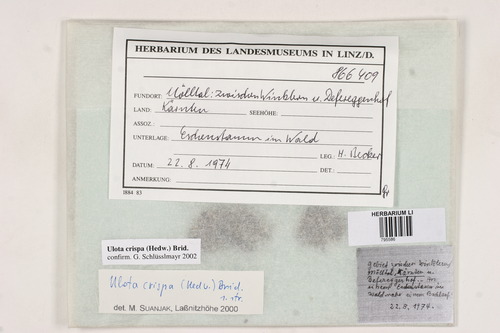 HERBARIUM DES LANDESMUSEUMS IN LINZ/D.
866409
FUNDORT: Mölltal: zwischen Winklern u. Defereggenhof
LAND: Kärnten SEEHÖHE:
ASSOZ.:
UNTERLAGE: Eschenstamm im Wald
LEG.: H. Becker
DATUM: 22.8.1974 DET.:
ANMERKUNG:
1884 83
HERBARIUM LI
Ulota crispa (Hedw.) Brid.
confirm. G. Schlüsslmayr 2002
Ulota crispa (Hedw.) Brid.
s. str.
det. M. SUANJAK, Laßnitzhöhe 2000
Winklern
Mölltal, Kärnten u.
Defereggenhof.
22.8.1974.